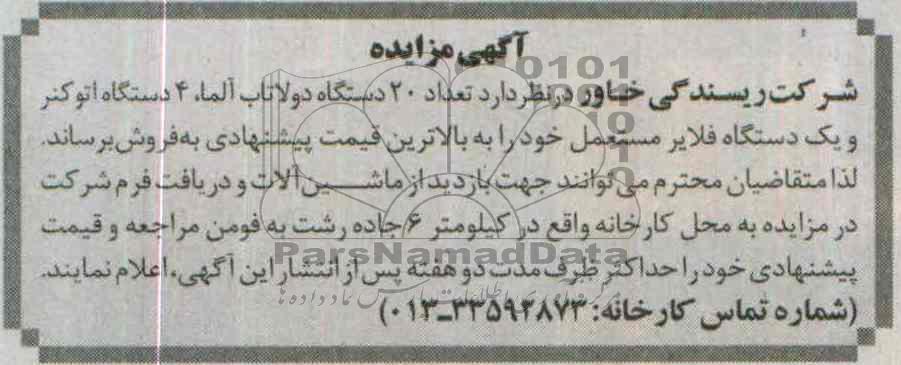 آگهی مزایده
شرکت ریسندگی خاور درنظر دارد تعداد ۲۰ دستگاه دولاتاب آلما، ۴ دستگاه اتوکنر
و یک دستگاه فلایر مستعمل خود را به بالاترین قیمت پیشنهادی به‌فروش برساند.
لذا متقاضیان محترم می‌توانند جهت بازدید از ماشین‌آلات و دریافت فرم شرکت
در مزایده به محل کارخانه واقع در کیلومتر ۶ جاده رشت به فومن مراجعه و قیمت
ParsNamadData
پیشنهادی خود را حداکثر ظرف مدت دو هفته پس از انتشار این آگهی، اعلام نمایند.
(شماره تماس کارخانه: ۳۳۵۹۲۸۷۳-۰۱۳)